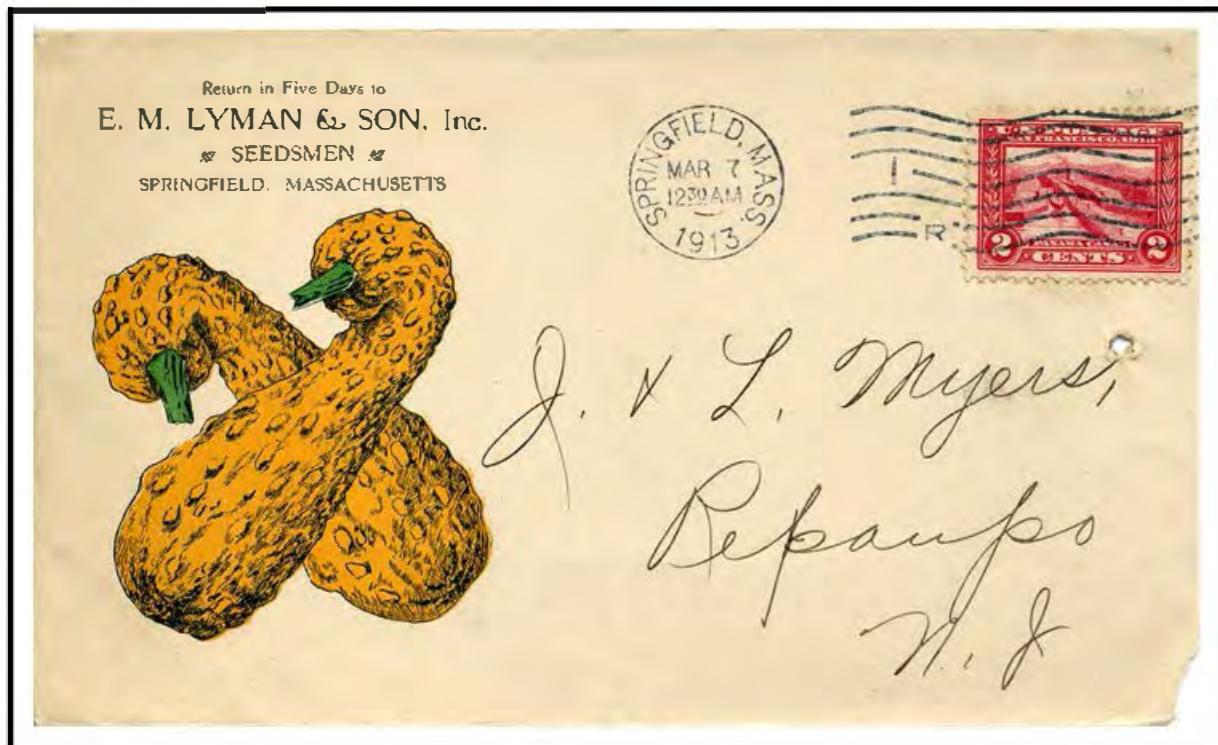 Return in Five Days to
E. M. LYMAN & SON, Inc.
SEEDSMEN
SPRINGFIELD, MASSACHUSETTS
SPRINGFIELD, MASS.
MAR 7
1230 AM
1913
I
R
SAN FRANCISCO
2 PANAMA CANAL 2
CENTS
J. & L. Myers,
Repaupo
N. J